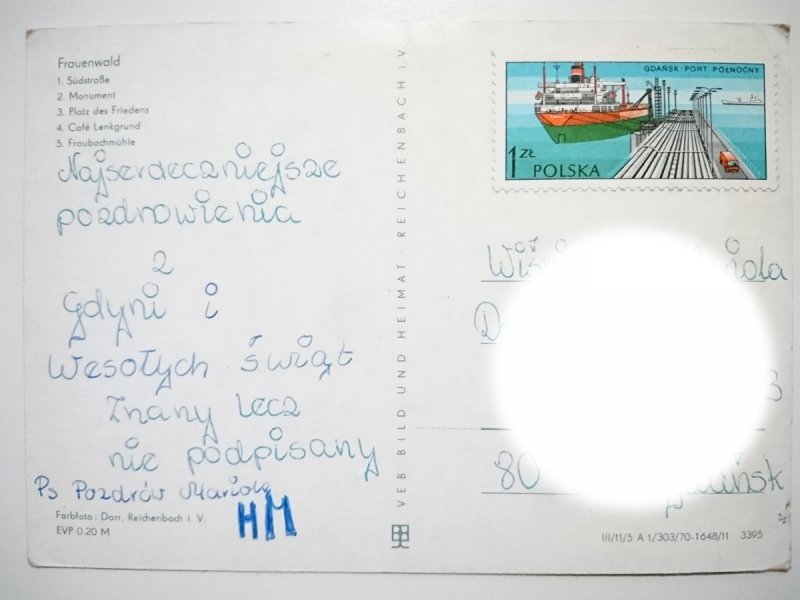 Frauenwald
1. Südstraße
2. Monument
3. Platz des Friedens
4. Café Lenkgrund
5. Fraubachmühle
Najserdeczniejsze
pozdrowienia
z
Gdyni i
Wesołych świąt
Znany lecz
nie podpisany
Ps Pozdrów Mariolę
HM
Farbfoto: Darr, Reichenbach i. V.
EVP 0.20 M
VEB BILD UND HEIMAT · REICHENBACH i. V.
GDAŃSK-PORT PÓŁNOCNY
1 ZŁ POLSKA
3
80
Gdańsk
III/11/5 A 1/303/70-1648/11 3395